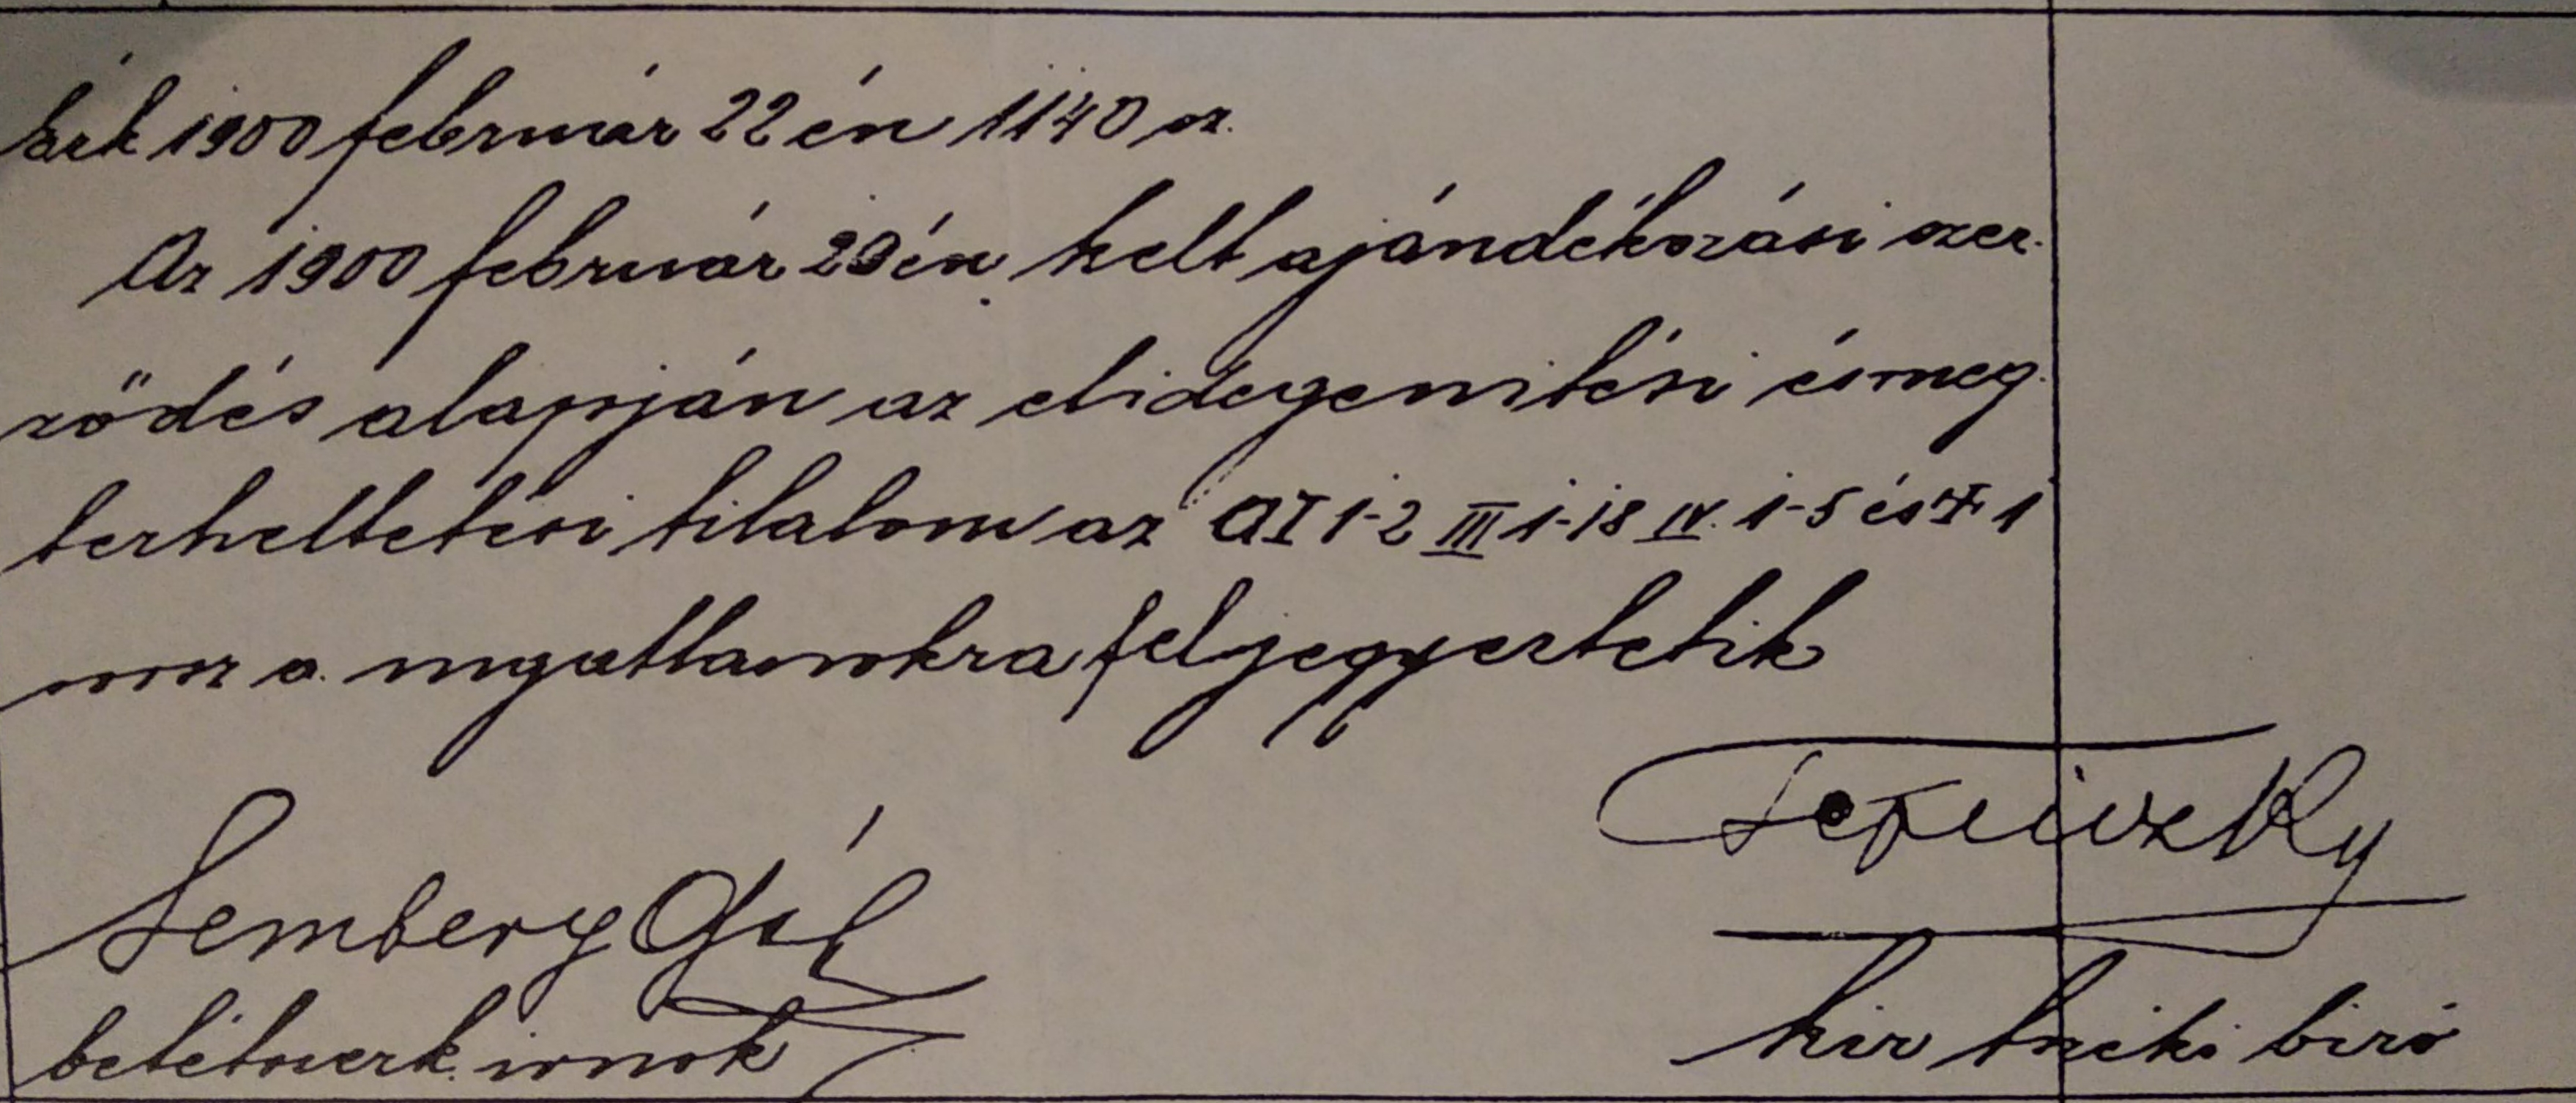 Érk 1900 február 22 én 1140 sz.
Az 1900 február 20 én kelt ajándékozási szer-
ződés alapján az elidegenitési és meg-
terheltetési tilalom az A I 1-2 III 1-18 IV. 1-5 és + 1
sorsz a. ingatlanokra feljegyeztetik
Lemberg Gál
betétszerk. irnok
kir tszéki biró